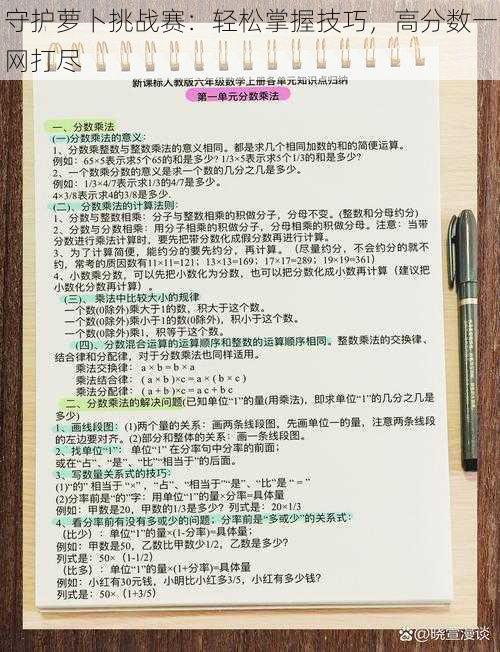 守护萝卜挑战赛：轻松掌握技巧，高分数一
网打尽
新课标人教版六年级数学上册各单元知识点归纳
第一单元分数乘法
一、分数乘法
(一)分数乘法的意义:
1、分数乘整数与整数乘法的意义相同。都是求几个相同加数的和的简便运算。
例如：65×5表示求5个65的和是多少？1/3×5表示求5个1/3的和是多少?
2、一个数乘分数的意义是求一个数的几分之几是多少。
例如：1/3×4/7表示求1/3的4/7是多少。
4×3/8表示求4的3/8是多少.
(二)、分数乘法的计算法则:
1、分数与整数相乘：分子与整数相乘的积做分子，分母不变。(整数和分母约分)
2、分数与分数相乘：用分子相乘的积做分子，分母相乘的积做分母。注意：当带
分数进行乘法计算时，要先把带分数化成假分数再进行计算。
3、为了计算简便，能约分的要先约分，再计算。（尽量约分，不会约分的就不
约，常考的质因数有11×11=121；13×13=169；17×17=289；19×19=361）
4、小数乘分数，可以先把小数化为分数，也可以把分数化成小数再计算（建议把
小数化分数再计算）。
(三)、乘法中比较大小的规律
一个数(0除外)乘大于1的数，积大于这个数。
一个数(0除外)乘小于1的数(0除外)，积小于这个数。
一个数(0除外)乘1，积等于这个数。
(四)、分数混合运算的运算顺序和整数的运算顺序相同。整数乘法的交换律、
结合律和分配律，对于分数乘法也同样适用。
乘法交换律：a×b=b×a
乘法结合律：(a×b)×c=a×(b×c)
乘法分配律：(a+b)×c=ac+bc
二、分数乘法的解决问题(已知单位“1”的量(用乘法)，即求单位“1”的几分之几是
多少)
1、画线段图：(1)两个量的关系：画两条线段图，先画单位一的量，注意两条线段
的左边要对齐。(2)部分和整体的关系：画一条线段图。
2、找单位“1”：单位“1”在分率句中分率的前面；
或在“占”、“是”、“比”“相当于”的后面。
3、写数量关系式的技巧：
(1)“的”相当于“×”，“占”、“相当于”“是”、“比”是“=”
(2)分率前是“的”字：用单位“1”的量×分率=具体量
例如：甲数是20，甲数的1/3是多少？列式是：20×1/3
4、看分率前有没有多或少的问题；分率前是“多或少”的关系式：
（比少）：单位“1”的量×(1-分率)=具体量；
例如：甲数是50，乙数比甲数少1/2，乙数是多少？
列式是：50×（1-1/2）
（比多）：单位“1”的量×(1+分率)=具体量
例如：小红有30元钱，小明比小红多3/5，小红有多少钱？
列式是：50×（1+3/5）
@晓萱漫谈